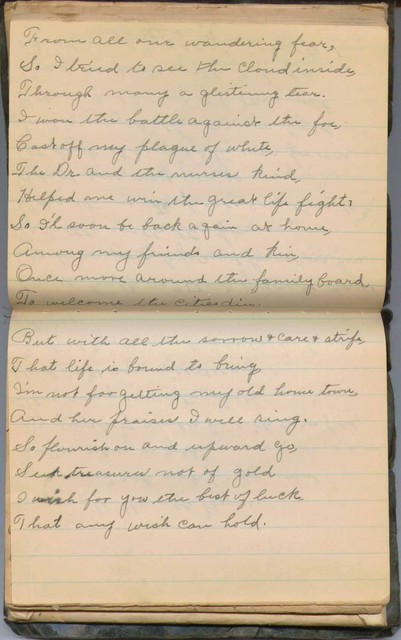 From all our wandering fear,
So I tried to see the cloud inside,
Through many a glistening tear.
I won the battle against the foe,
Cast off my plague of white,
The Dr. and the nurses kind,
Helped me win the great life fight,
So I'll soon be back again at home,
Among my friends and kin,
Once more around the family board
To welcome the cities din.
But with all the sorrow & care & strife,
That life is bound to bring,
I'm not forgetting my old home town,
And her praises I will sing.
So flourish on and upward go,
Seek treasures not of gold
I wish for you the best of luck
That any wish can hold.